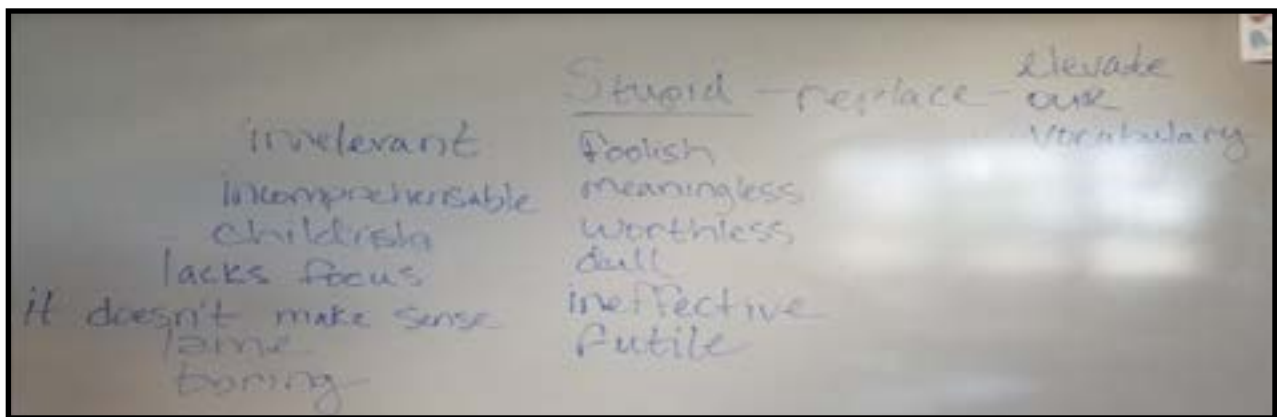 Stupid - replace - elevate our vocabulary
irrelevant
incomprehensable
childish
lacks focus
it doesn't make sense
lame
boring
foolish
meaningless
worthless
dull
ineffective
futile